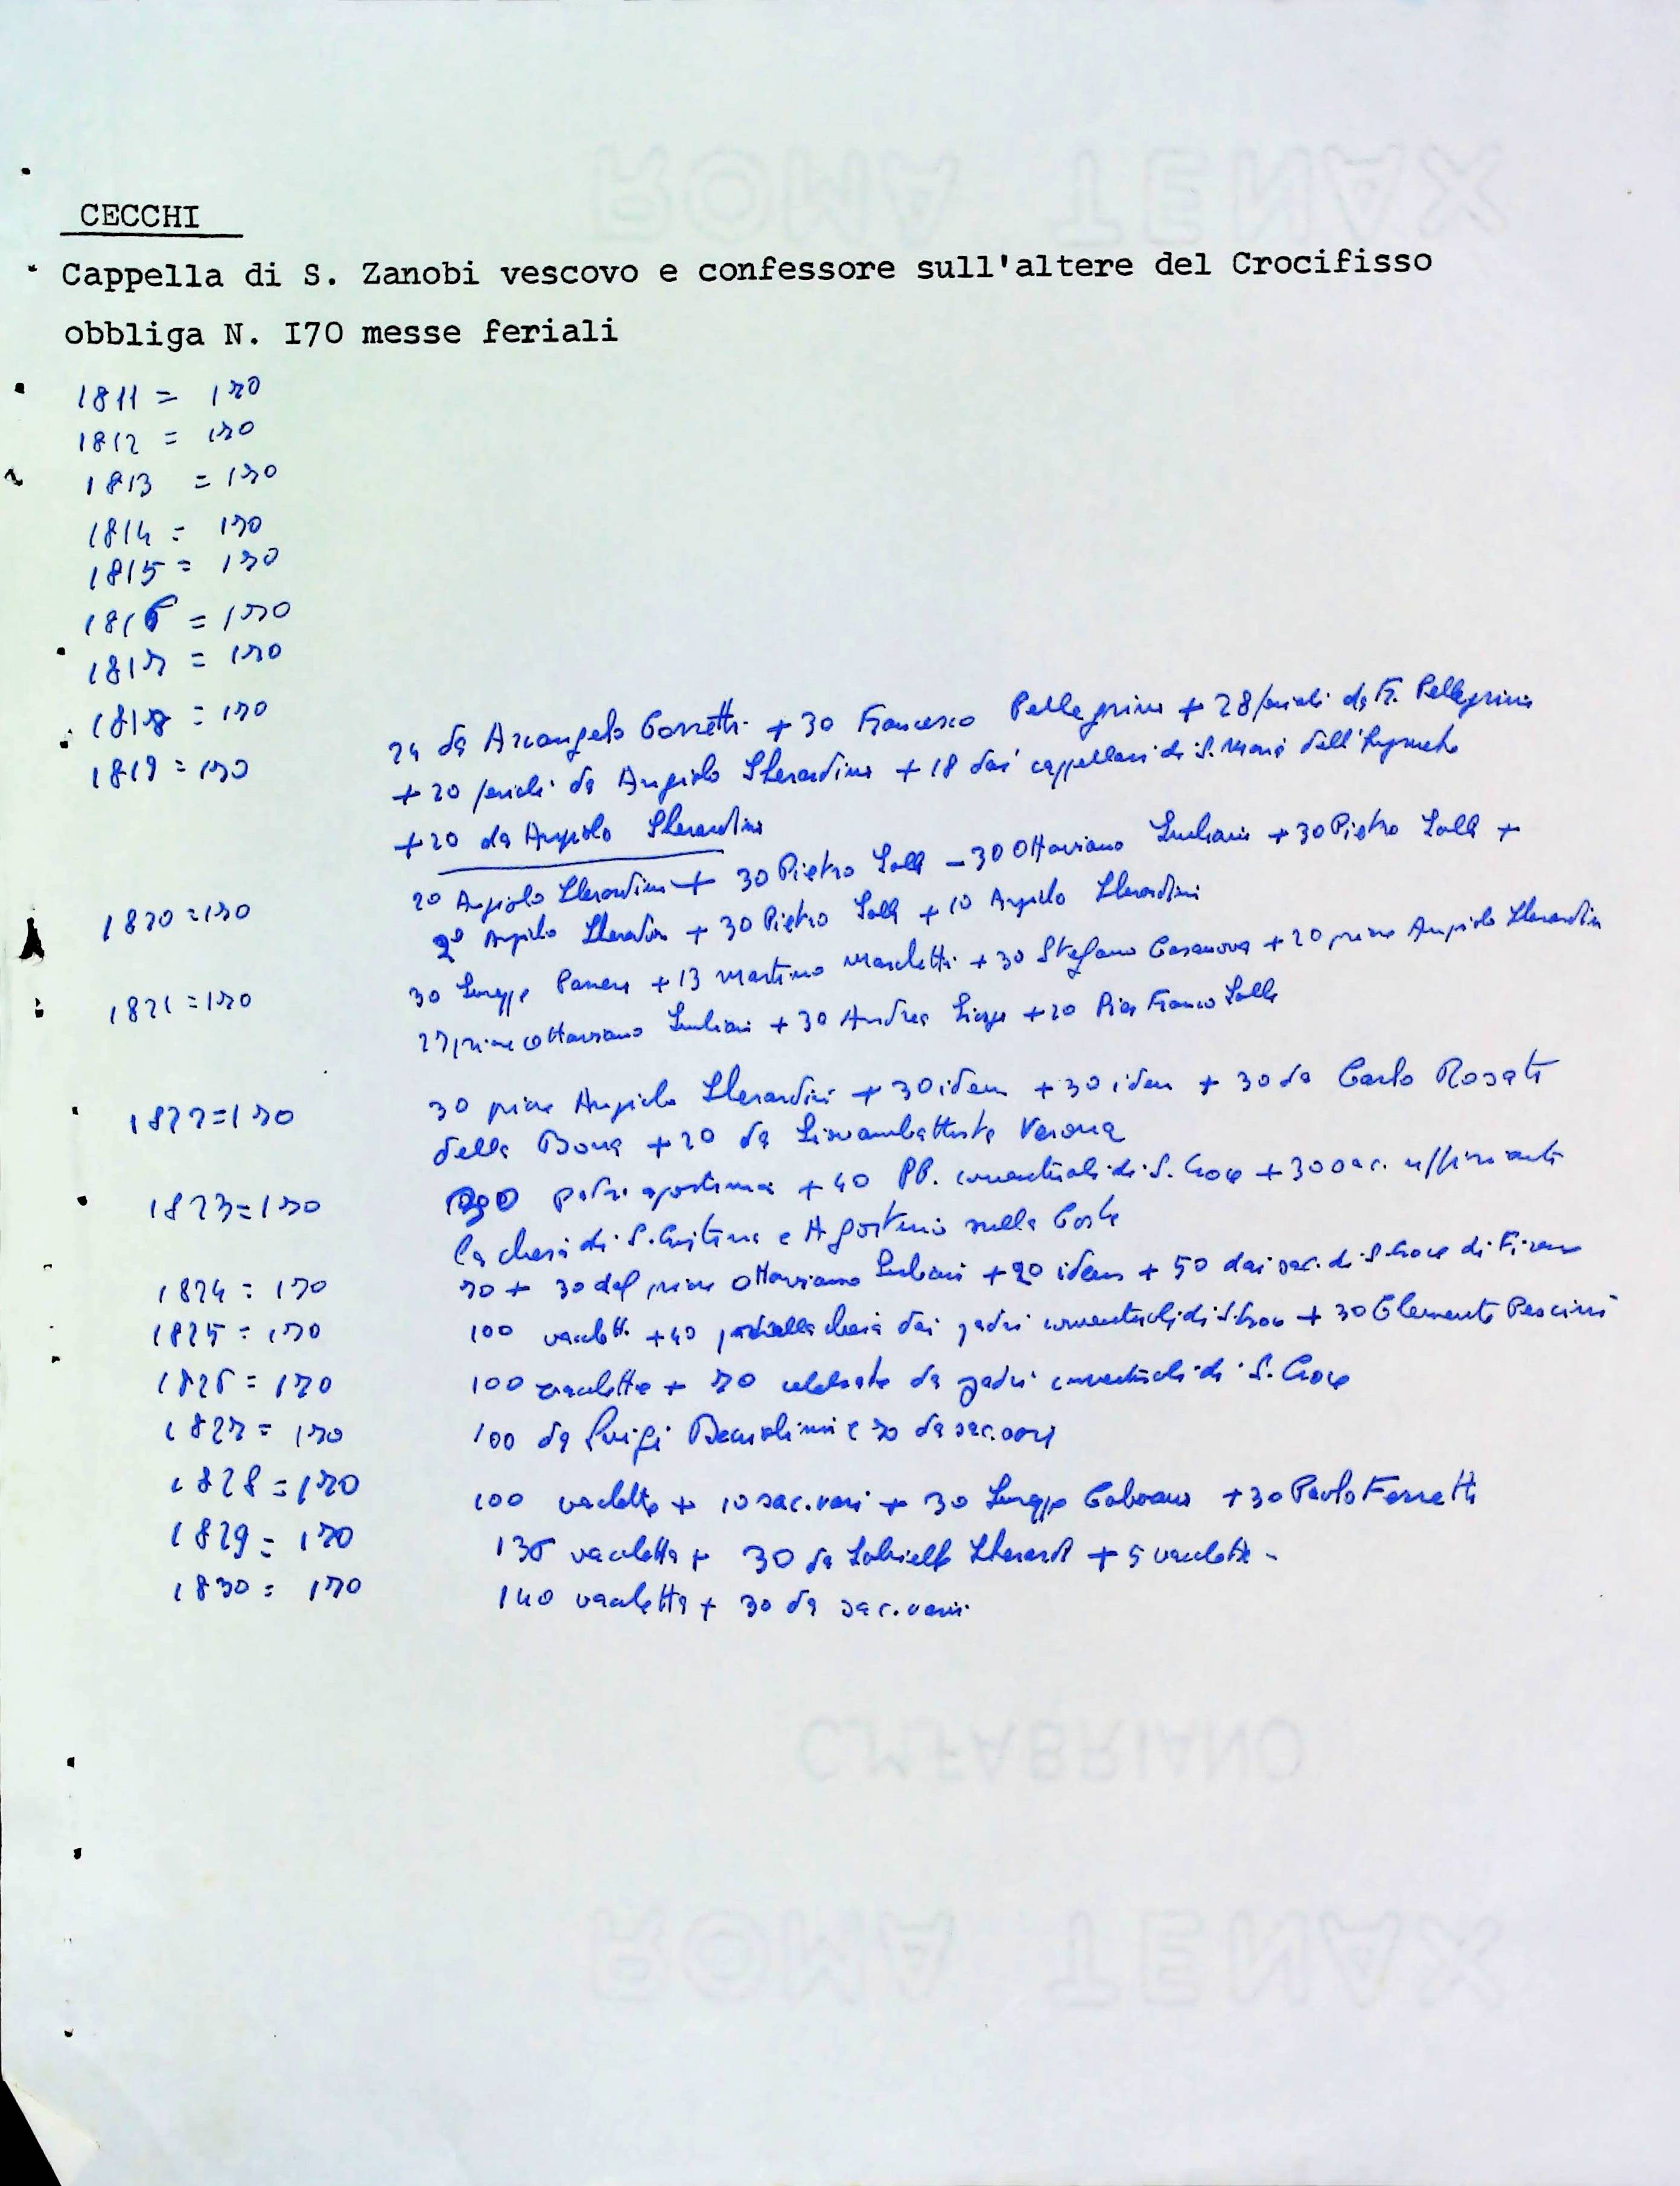 CECCHI
Cappella di S. Zanobi vescovo e confessore sull'altere del Crocifisso
obbliga N. I70 messe feriali
1811 = 170
1812 = 170
1813 = 170
1814 = 170
1815 = 170
1816 = 170
1817 = 170
1818 = 170
1819 = 170 24 da Arcangelo + 30 Francesco Pellegrini + 28 feriali da Fr. Pellegrini
+ 20 feriali da Angiolo Gherardini + 18 dai cappellani di S. Maria dell'
+ 20 da Angiolo Gherardini
1820 = 170 20 Angiolo Gherardini + 30 Pietro Galli - 30 Ottaviano Giuliani + 30 Pietro Galli +
20 Angiolo Gherardini + 30 Pietro Galli + 10 Angiolo Gherardini
1821 = 170 30 Giuseppe + 13 Martino + 30 Stefano Casanova + 20 priore Angiolo Gherardini
27 priore Ottaviano Giuliani + 30 Andrea + 20 Pier Franco Galli
1822 = 170 30 priore Angiolo Gherardini + 30 idem + 30 idem + 30 da Carlo Rosati
della + 20 da Giovambattista Verona
1823 = 170 + 40 PP. conventuali di S. Croce + 30 sac. uffizianti
la chiesa di S. e Agostino sulla Costa
1824 = 170 70 + 30 dal priore Ottaviano Giuliani + 20 idem + 50 dai sac. di S. Croce di Firenze
1825 = 170 100 + 40 dai padri conventuali di S. Croce + 30 Clemente
1826 = 170 100 vacchetta + 70 celebrate da padri conventuali di S. Croce
1827 = 170 100 da Luigi e 70 da sac. vari
1828 = 170 100 vacchetta + 10 sac. vari + 30 Giuseppe + 30 Paolo Ferretti
1829 = 170 135 vacchetta + 30 da Gabriello Gherardi + 5 vacchetta -
1830 = 170 140 vacchetta + 30 da sac. vari
ROMA TENAX
C.M.FABRIANO
ROMA TENAX